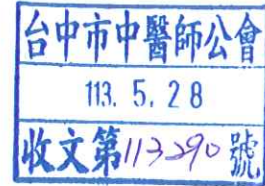 台中市中醫師公會
113. 5. 28
收文第113290號